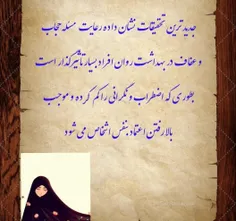 جدیدترین تحقیقات نشان داده رعایت مسئله حجاب
و عفاف در بهداشت روان افراد بسیار تاثیرگذار است
بطوری که اضطراب و نگرانی را کم کرده و موجب
بالا رفتن اعتماد بنفس اشخاص می شود